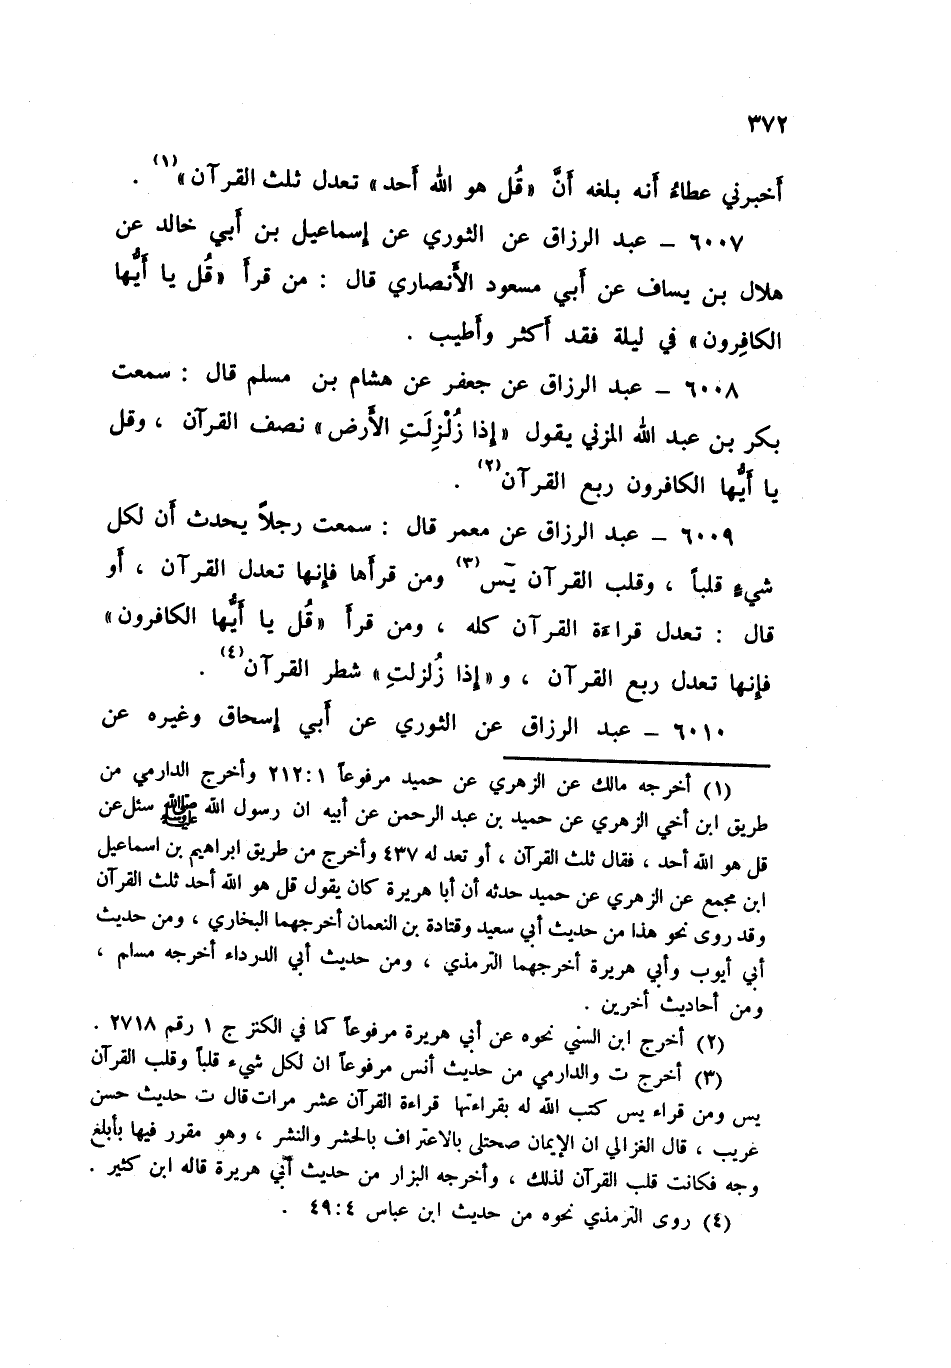 ٣٧٢
أخبرني عطاءُ أنه بلغه أنَّ «قُل هو الله أَحد» تعدل ثلث القرآن»(١) .
٦٠٠٧ – عبد الرزاق عن الثوري عن إسماعيل بن أَبي خالد عن
هلال بن يساف عن أَبي مسعود الأَنصاري قال : من قرأَ «قُل يا أَيُّها
الكافِرون» في ليلة فقد أَكثر وأَطيب .
٦٠٠٨ – عبد الرزاق عن جعفر عن هشام بن مسلم قال : سمعت
بكر بن عبد الله المزني يقول «إذا زُلْزِلَتِ الأَرض» نصف القرآن ، وقل
يا أَيُّها الكافرون ربع القرآن(٢) .
٦٠٠٩ – عبد الرزاق عن معمر قال : سمعت رجلاً يحدث أَن لكل
شيءٍ قلباً ، وقلب القرآن يَس(٣) ومن قرأَها فإنها تعدل القرآن ، أَو
قال : تعدل قراءة القرآن كله ، ومن قرأَ «قُل يا أَيُّها الكافرون»
فإنها تعدل ربع القرآن ، و «إذا زُلزلتِ» شطر القرآن(٤) .
٦٠١٠ – عبد الرزاق عن الثوري عن أَبي إسحاق وغيره عن
(١) أخرجه مالك عن الزهري عن حميد مرفوعاً ١:٢١٢ وأخرج الدارمي من
طريق ابن أخي الزهري عن حميد بن عبد الرحمن عن أبيه ان رسول الله ﷺ سئل عن
قل هو الله أحد ، فقال ثلث القرآن ، أو تعد له ٤٣٧ وأخرج من طريق ابراهيم بن اسماعيل
ابن مجمع عن الزهري عن حميد حدثه أن أبا هريرة كان يقول قل هو الله أحد ثلث القرآن
وقد روى نحو هذا من حديث أبي سعيد وقتادة بن النعمان أخرجهما البخاري ، ومن حديث
أبي أيوب وأبي هريرة أخرجهما الترمذي ، ومن حديث أبي الدرداء أخرجه مسلم ،
ومن أحاديث أخرين .
(٢) أخرج ابن السني نحوه عن أبي هريرة مرفوعاً كما في الكنز ج ١ رقم ٢٧١٨ .
(٣) أخرج ت والدارمي من حديث أنس مرفوعاً ان لكل شيء قلباً وقلب القرآن
يس ومن قراء يس كتب الله له بقراءتها قراءة القرآن عشر مرات قال ت حديث حسن
غريب ، قال الغزالي ان الإيمان صحتلى بالاعتراف بالحشر والنشر ، وهو مقرر فيها بأبلغ
وجه فكانت قلب القرآن لذلك ، وأخرجه البزار من حديث أبي هريرة قاله ابن كثير .
(٤) روى الترمذي نحوه من حديث ابن عباس ٤:٤٩ .